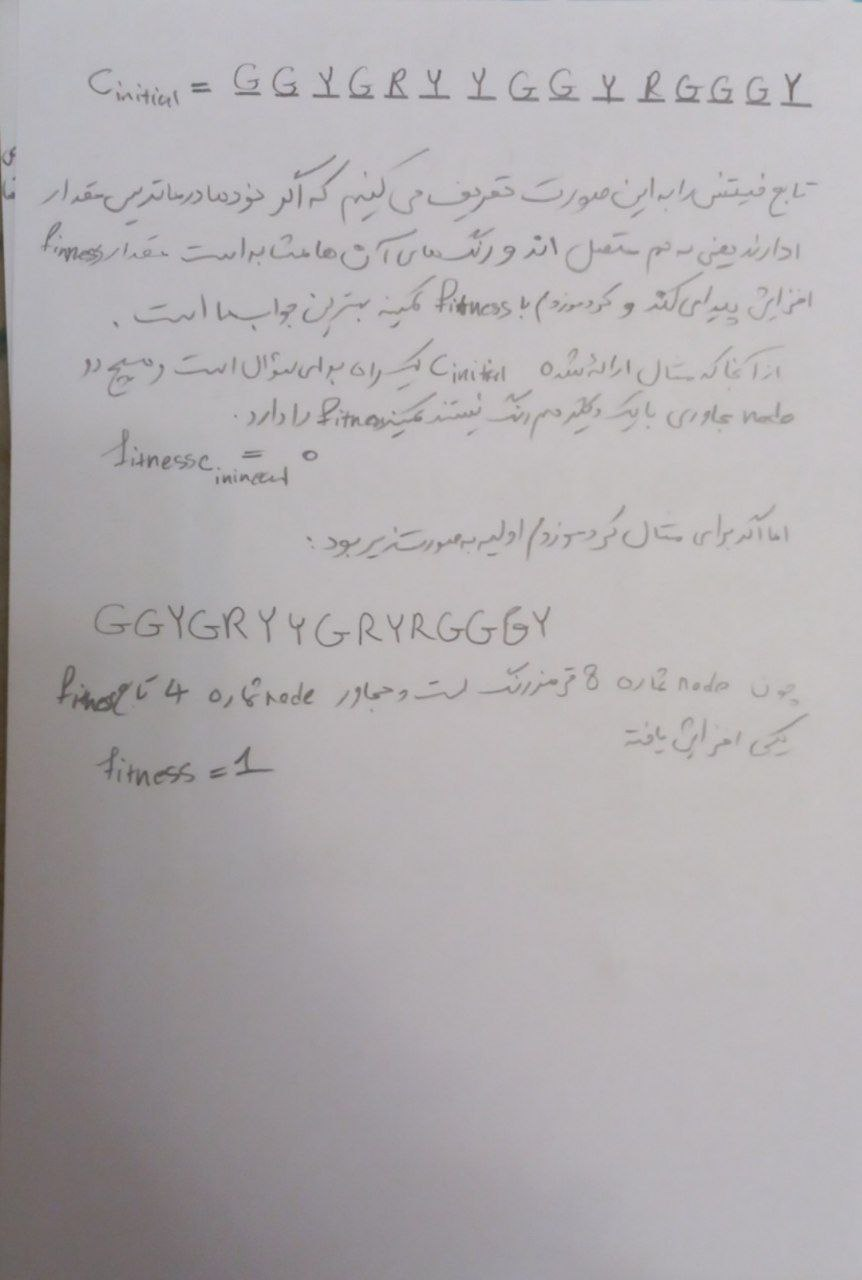 C initial = G G Y G R Y Y G G Y R G G G Y
تابع فیتنس را به این صورت تعریف می کنیم که اگر نودها در ماتریس مقدار
1 دارند یعنی به هم متصل اند و رنگ های آن ها مشابه است مقدار fitness
افزایش پیدا می کند و کروموزوم با fitness کمینه بهترین جواب ما است .
از آنجا که مثال ارائه شده C initial یک راه برای سوال است و هیچ دو
node مجاوری با یک دیگر هم رنگ نیستند کمینه fitness را دارد .
fitness C = 0
اما اگر برای مثال کروموزوم اولیه به صورت زیر بود :
GGYGRYYGRYRGGGY
چون node شماره 8 قرمز رنگ است و مجاور node شماره 4 تا fitness
یکی افزایش یافته
fitness = 1